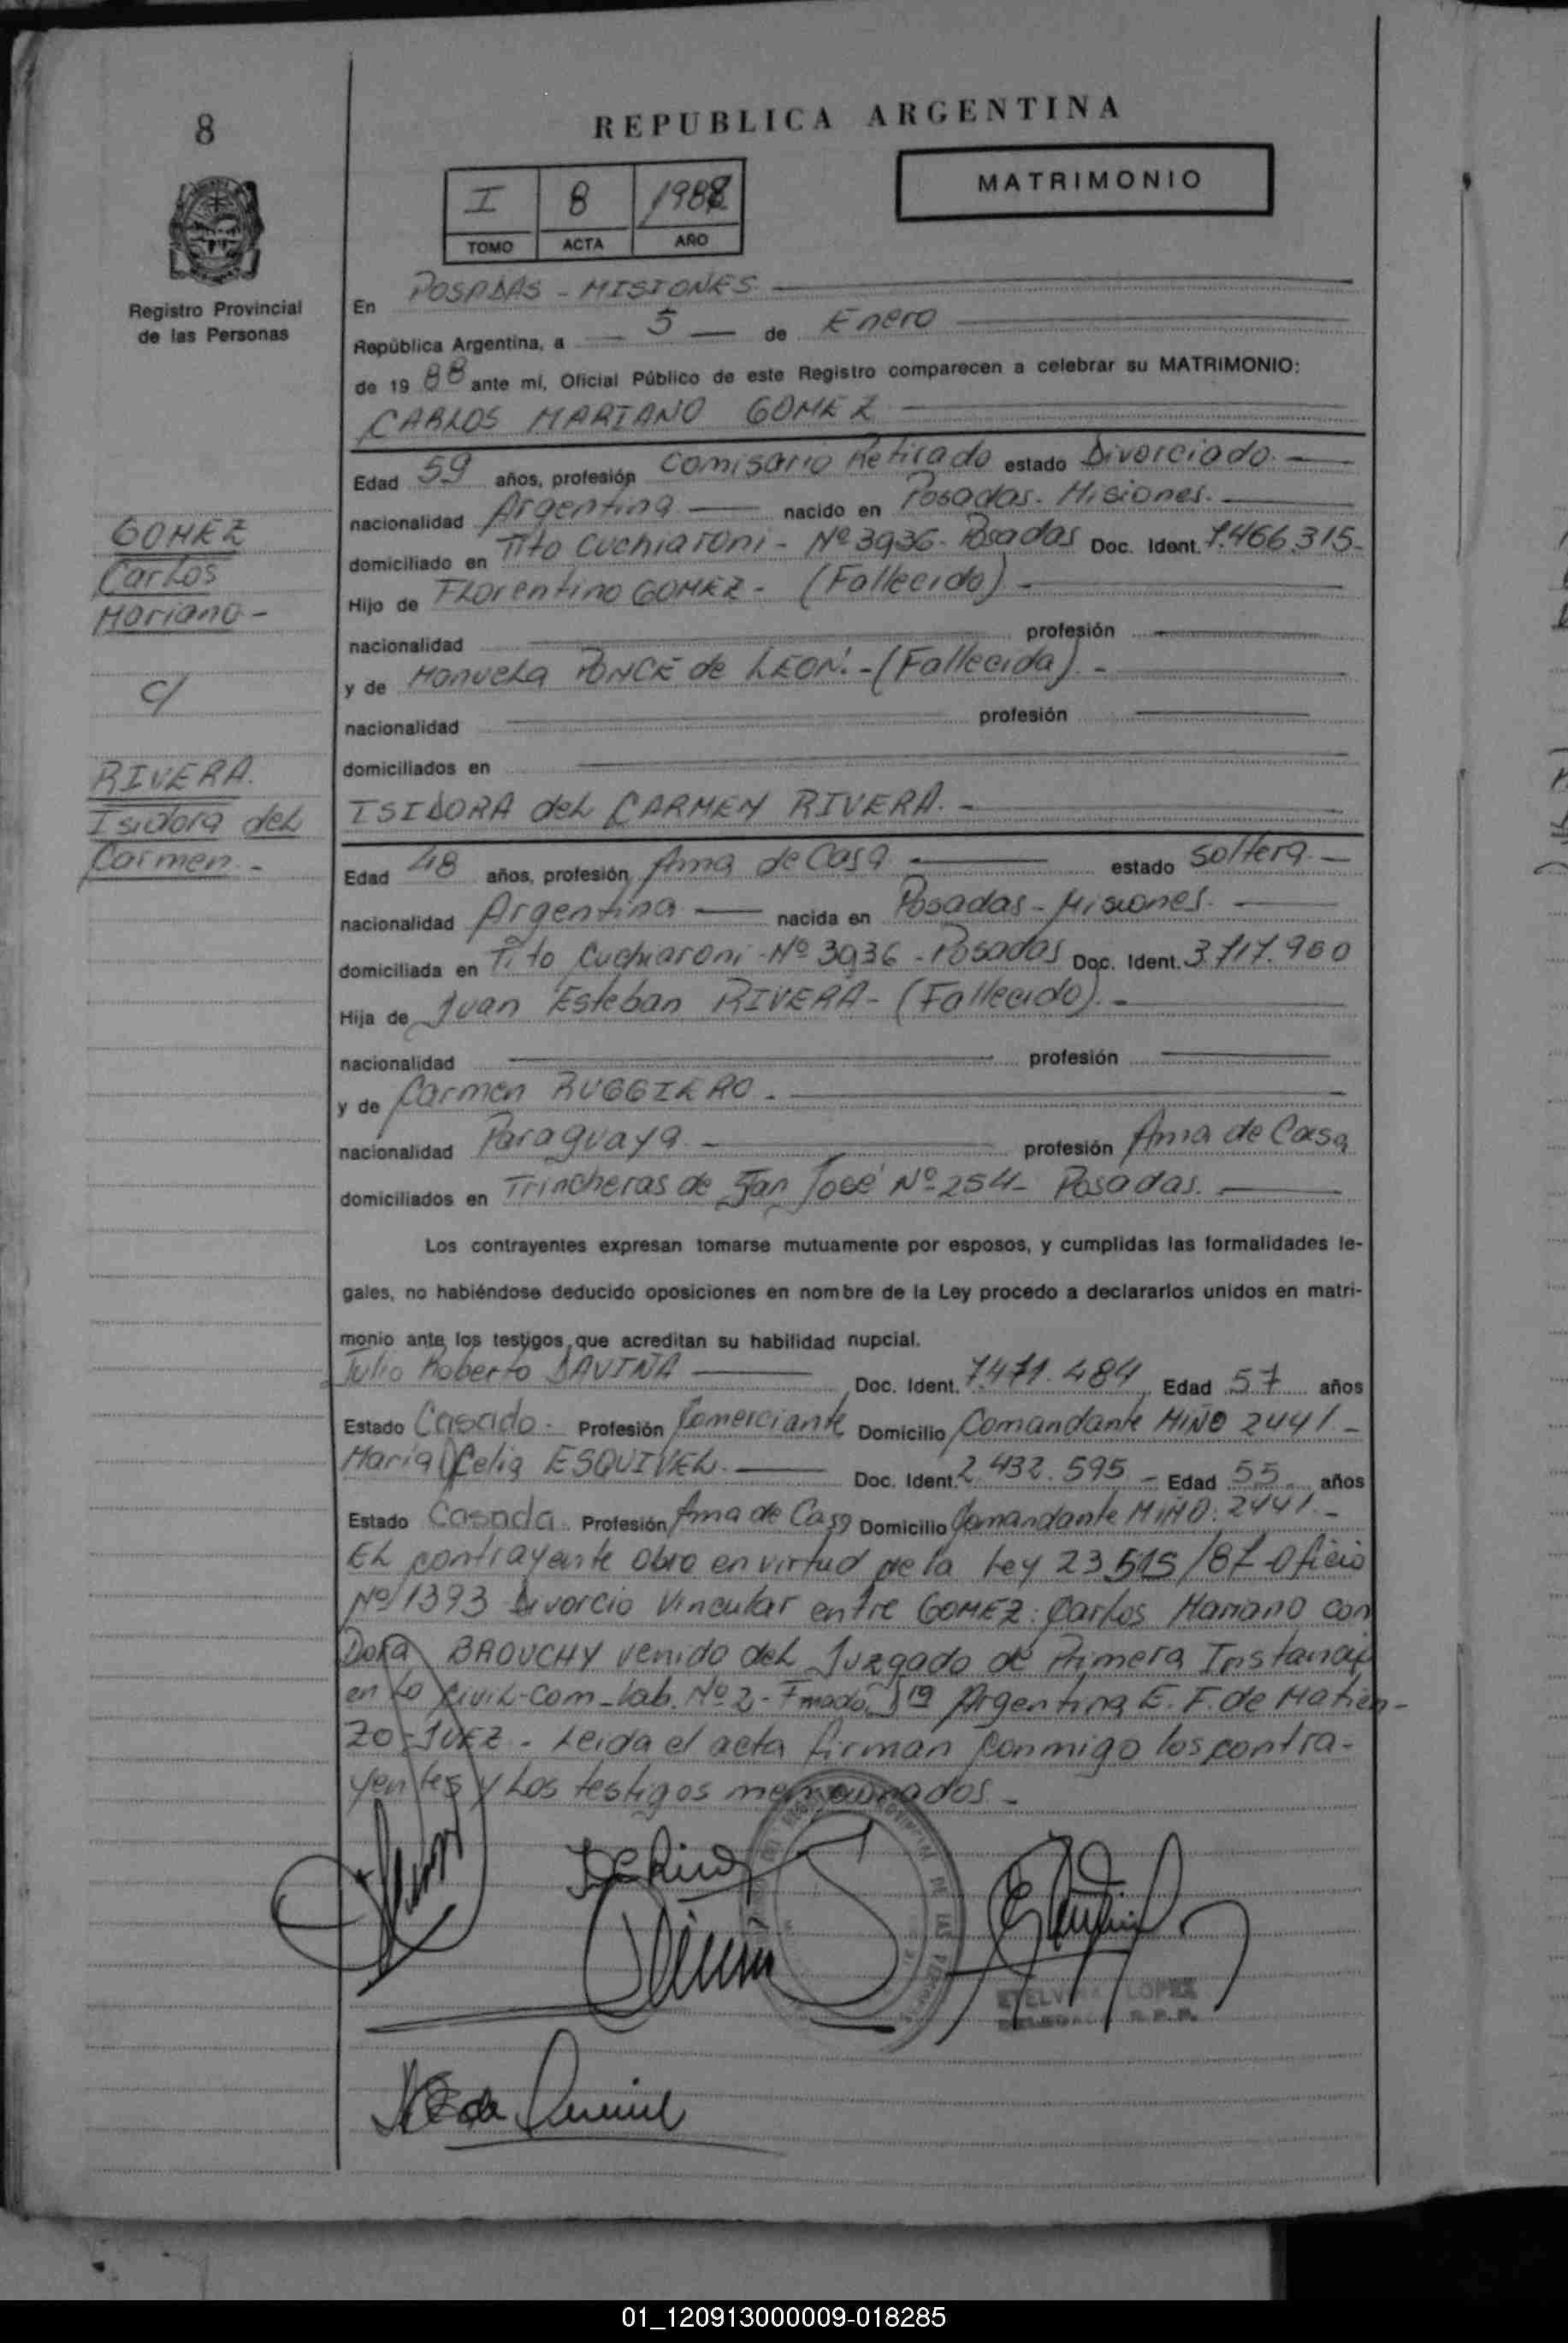 8
REPUBLICA ARGENTINA
MATRIMONIO
I 8 1988
TOMO ACTA AÑO
Registro Provincial
de las Personas
En POSADAS - MISIONES
República Argentina, a 5 de Enero
de 19 88 ante mí, Oficial Público de este Registro comparecen a celebrar su MATRIMONIO:
CARLOS MARIANO GOMEZ
Edad 59 años, profesión Comisario Retirado estado Divorciado.
nacionalidad Argentina nacido en Posadas. Misiones.
domiciliado en Tito Cuchiaroni - Nº 3936 - Posadas Doc. Ident. 7.466.315-
Hijo de Florentino GOMEZ - (Fallecido) -
nacionalidad profesión
y de Manuela PONCE de LEON. - (Fallecida). -
nacionalidad profesión
domiciliados en
GOMEZ
Carlos
Mariano -
c/
RIVERA.
Isidora del
Carmen. -
ISIDORA del CARMEN RIVERA. -
Edad 48 años, profesión Ama de Casa estado Soltera. -
nacionalidad Argentina nacida en Posadas - Misiones.
domiciliada en Tito Cuchiaroni - Nº 3936 - Posadas Doc. Ident. 3.717.960
Hija de Juan Esteban RIVERA - (Fallecido). -
nacionalidad profesión
y de Carmen RUGGIERO. -
nacionalidad Paraguaya. - profesión Ama de Casa
domiciliados en Trincheras de San José Nº 254 - Posadas.
Los contrayentes expresan tomarse mutuamente por esposos, y cumplidas las formalidades le-
gales, no habiéndose deducido oposiciones en nombre de la Ley procedo a declararlos unidos en matri-
monio ante los testigos que acreditan su habilidad nupcial.
Julio Roberto DAVIÑA Doc. Ident. 7.471.484 Edad 57 años
Estado Casado - Profesión Comerciante Domicilio Comandante MIÑO 2441. -
María Celia ESQUIVEL. Doc. Ident. 2.432.595 - Edad 55 años
Estado Casada Profesión Ama de Casa Domicilio Comandante MIÑO. 2441. -
EL contrayente obro en virtud de la Ley 23.515/87 - Oficio
Nº 1393 Divorcio Vincular entre GOMEZ: Carlos Mariano con
Dora BAOUCHY venido del Juzgado de Primera Instancia
en lo Civil-Com-lab. Nº 2 - Fmado. Argentina E. F. de Matien-
ZO - JUEZ - Leida el acta firman conmigo los contra-
yentes y Los testigos mencionados -
DE LAS
LOPEZ
01_120913000009-018285